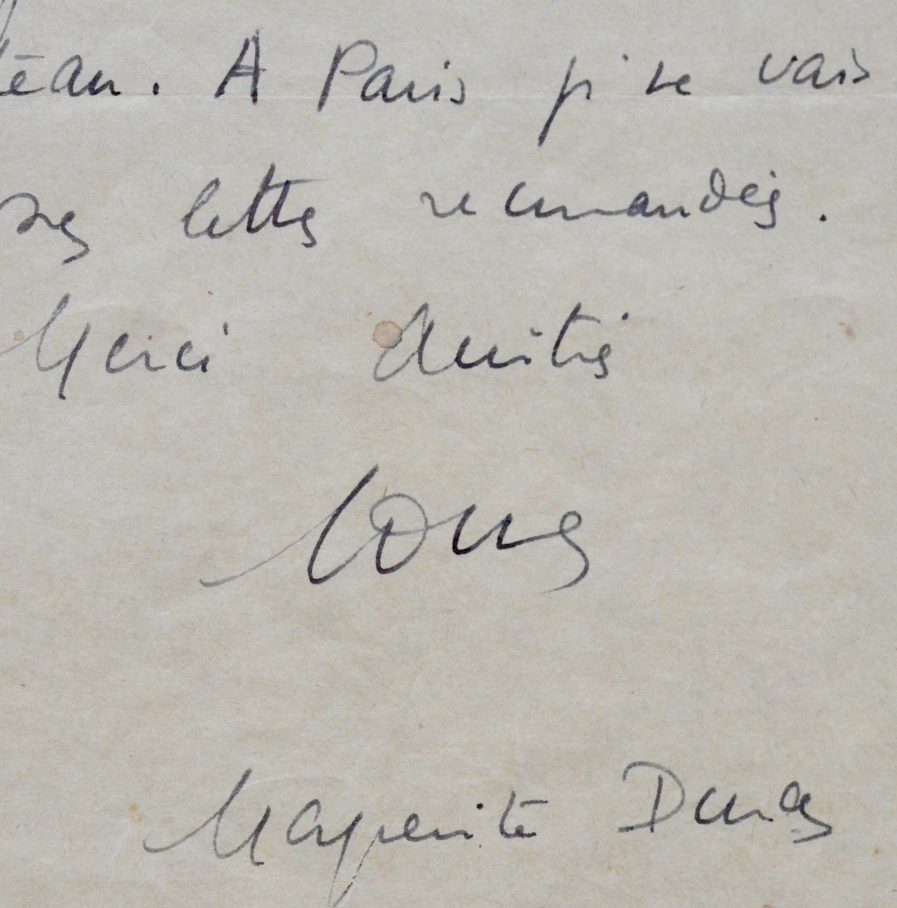 teau. A Paris je ne vais
des lettres recommandées.
Merci Amitiés
Marguerite Duras